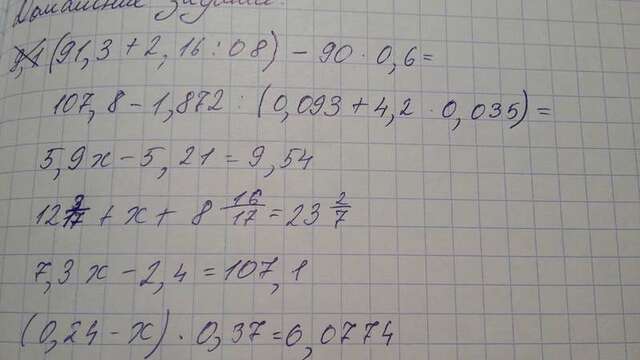 Домашнее задание.
(91,3 + 2,16 : 08) - 90 · 0,6 =
107,8 - 1,872 : (0,093 + 4,2 · 0,035) =
5,9x - 5,21 = 9,54
12 3/17 + x + 8 16/17 = 23 2/7
7,3x - 2,4 = 107,1
(0,24 - x) · 0,37 = 0,0774